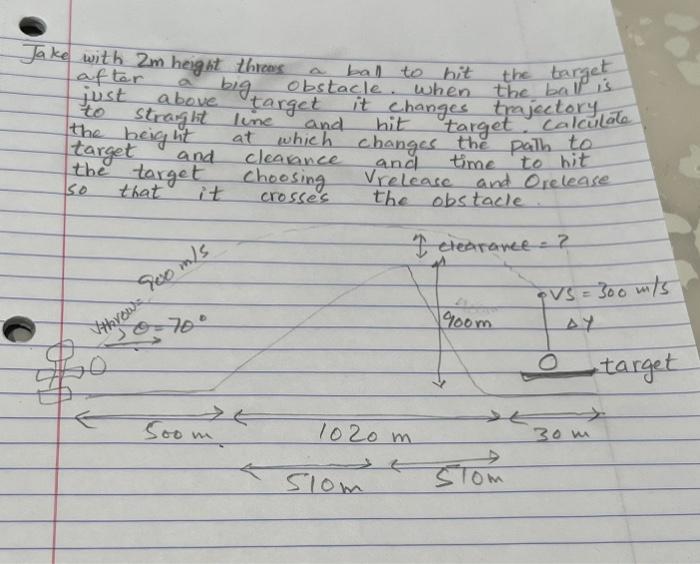 Jake with 2m height throws a ball to hit the target
after a big obstacle. when the ball is
just above target it changes trajectory
to straight line and hit target. Calculate
the height at which changes the path to
target and clearance and time to hit
the target choosing Vrelease and Θrelease
so that it crosses the obstacle.
↕ clearance = ?
Vthrow= 900 m/s
VS = 300 m/s
θ = 70°
900m
ΔY
target
500 m
1020 m
30 m
510m
510m